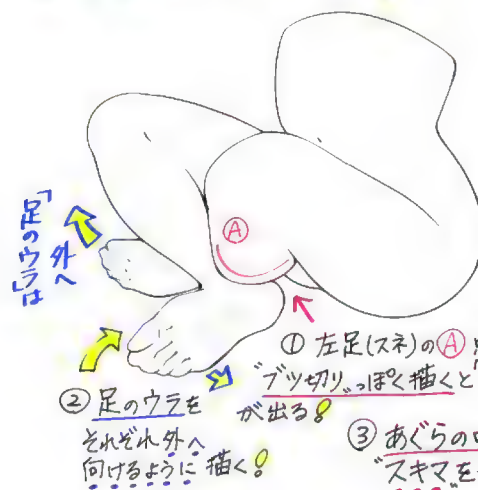 「足のウラ」は
外へ
Ⓐ
① 左足(スネ)のⒶ
"ブツ切り"っぽく描くと
が出る!
② 足のウラを
それぞれ外へ
向けるように描く!
③ あぐらの
"スキマを